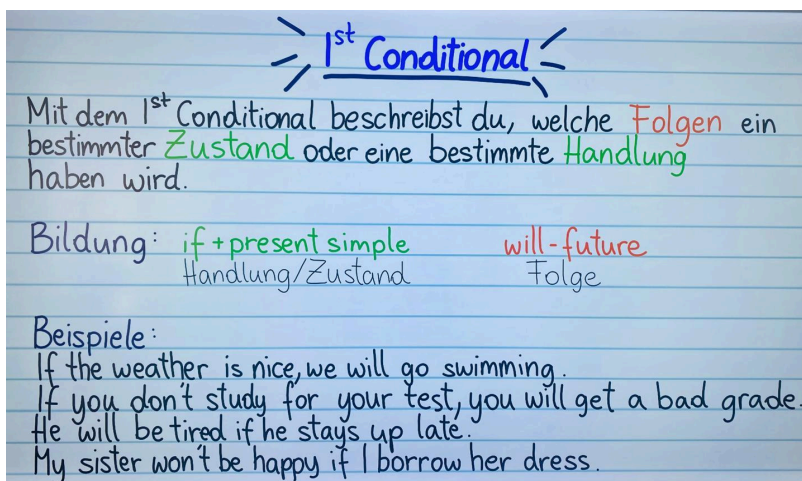 1st Conditional
Mit dem 1st Conditional beschreibst du, welche Folgen ein
bestimmter Zustand oder eine bestimmte Handlung
haben wird.
Bildung: if + present simple will-future
Handlung/Zustand Folge
Beispiele:
If the weather is nice, we will go swimming.
If you don't study for your test, you will get a bad grade.
He will be tired if he stays up late.
My sister won't be happy if I borrow her dress.